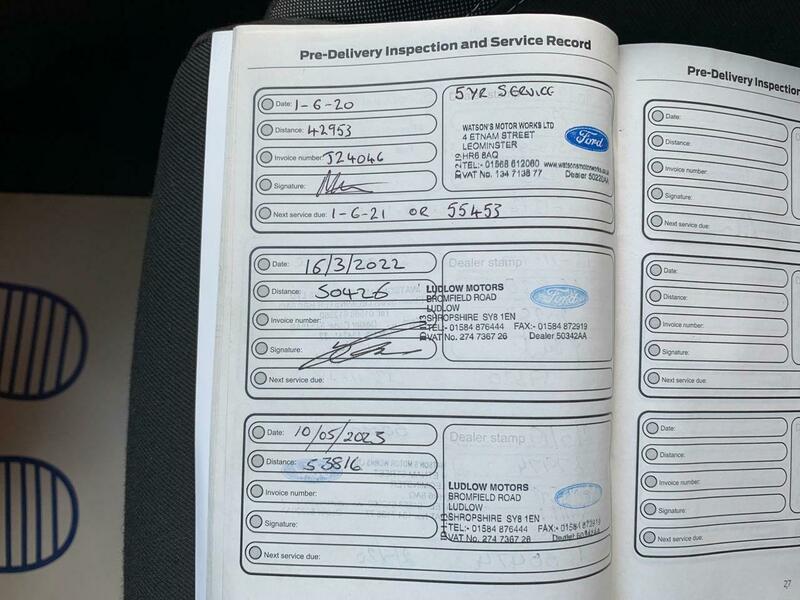 Pre-Delivery Inspection and Service Record
Date: 1-6-20
Distance: 42953
Invoice number: J24046
Signature:
Next service due: 1-6-21 OR 55453
5 YR SERVICE
WATSON'S MOTOR WORKS LTD
4 ETNAM STREET
LEOMINSTER
HR6 8AQ
TEL:- 01568 612060 www.watsonsmotorworks.co.uk
VAT No. 134 7138 77 Dealer 50220AA
Ford
Date: 16/3/2022
Distance: 50426
Invoice number:
Signature:
Next service due:
Dealer stamp
LUDLOW MOTORS
BROMFIELD ROAD
LUDLOW
SHROPSHIRE SY8 1EN
TEL:- 01584 876444 FAX:- 01584 872919
VAT No. 274 7367 26 Dealer 50342AA
Ford
Date: 10/05/2023
Distance: 53816
Invoice number:
Signature:
Next service due:
Dealer stamp
LUDLOW MOTORS
BROMFIELD ROAD
LUDLOW
SHROPSHIRE SY8 1EN
TEL:- 01584 876444 FAX:- 01584 872919
VAT No. 274 7367 26 Dealer 50342AA
Pre-Delivery Inspection
Date:
Distance:
Invoice number:
Signature:
Next service due:
Date:
Distance:
Invoice number:
Signature:
Next service due:
Date:
Distance:
Invoice number:
Signature:
Next service due:
27